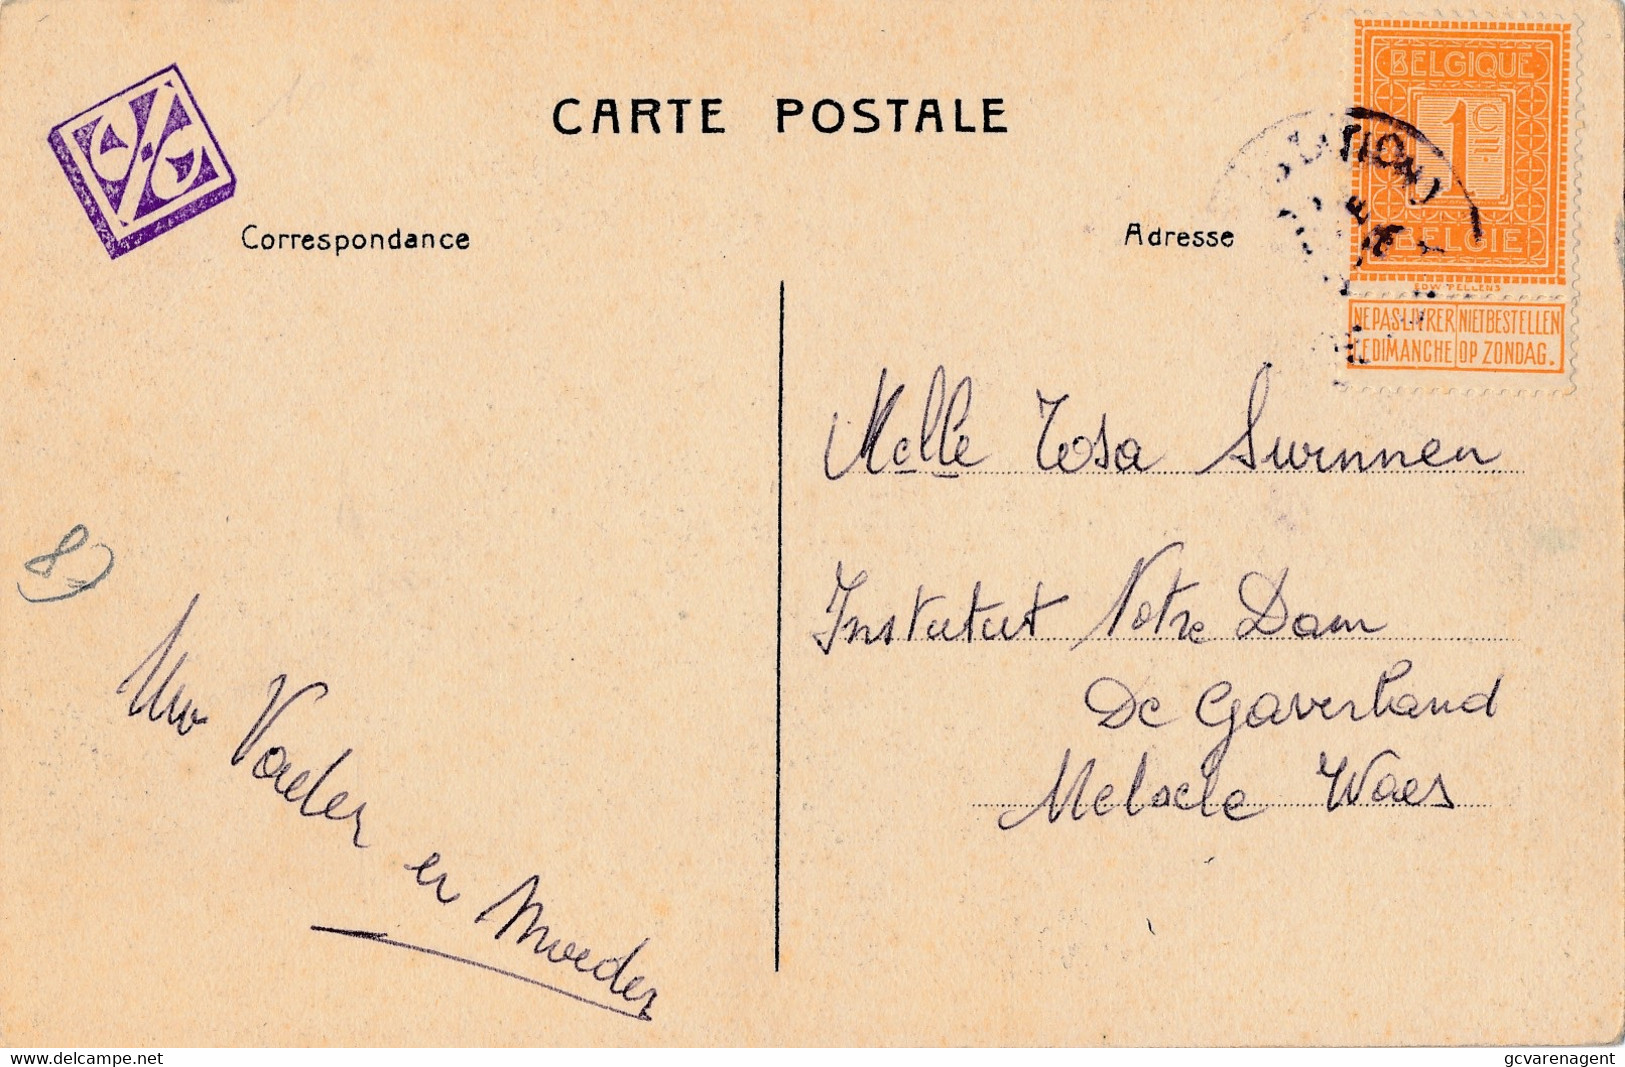 CARTE POSTALE
Correspondance
Adresse
BELGIQUE
1c
BELGIE
EDW PELLENS
NE PAS LIVRER NIET BESTELLEN
LE DIMANCHE OP ZONDAG.
Melle Rosa Swinnen
Institut Notre Dam
De Gaverland
Melsele Waes
Uw Vader
en Moeder
8
delcampe.net
gcvarenagent